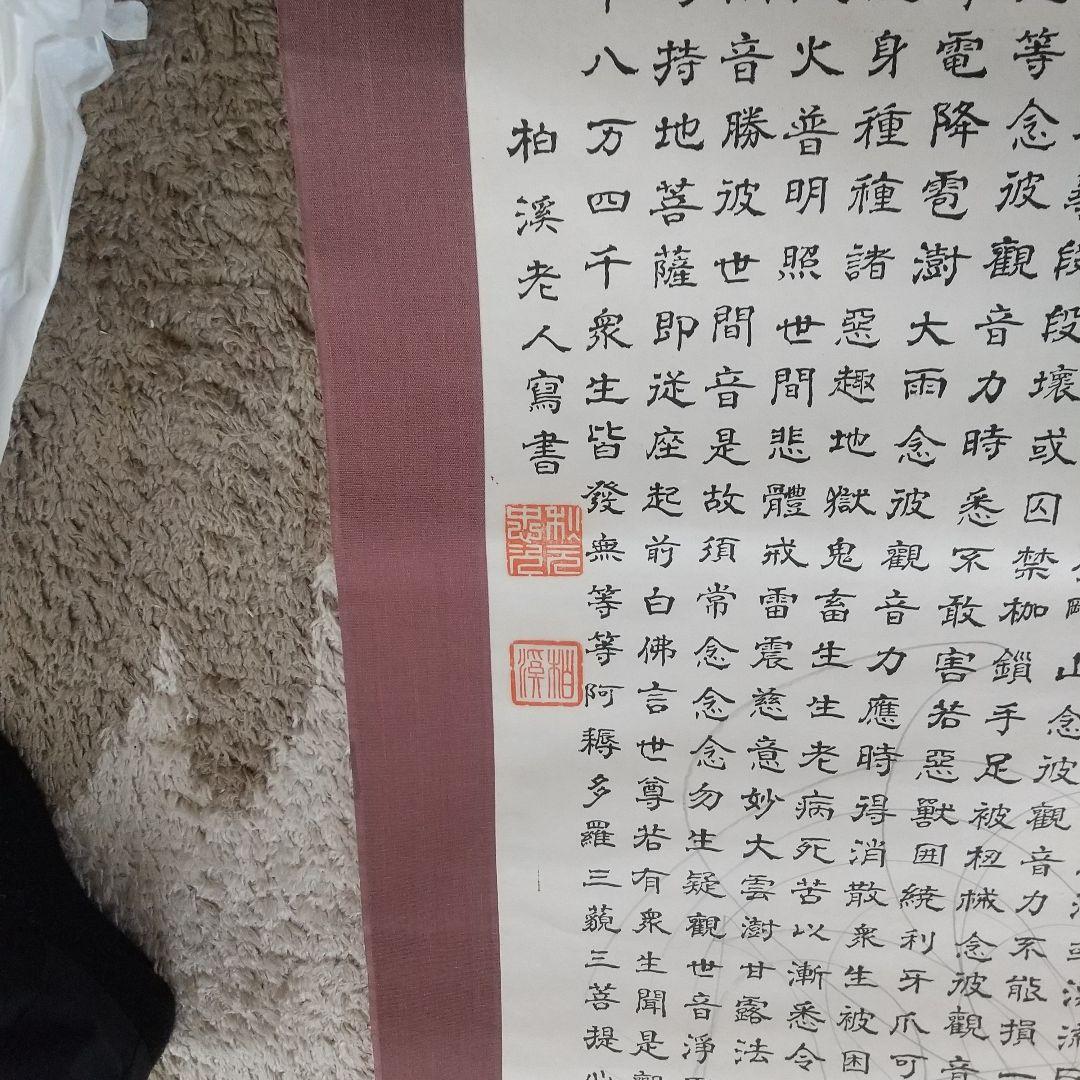 段段壞或囚禁枷鎖手足被杻械念彼觀音
念彼觀音力不能損一
等念彼觀音力時悉不敢害若惡獸囲繞利牙爪可
電降雹澍大雨念彼觀音力應時得消散衆生被困
身種種諸惡趣地獄鬼畜生生老病死苦以漸悉令
火普明照世間悲體戒雷震慈意妙大雲澍甘露法
音勝彼世間音是故須常念念念勿生疑觀世音淨
持地菩薩即從座起前白佛言世尊若有衆生聞是觀
八万四千衆生皆發無等等阿耨多羅三藐三菩提心
柏溪老人寫書
柏溪